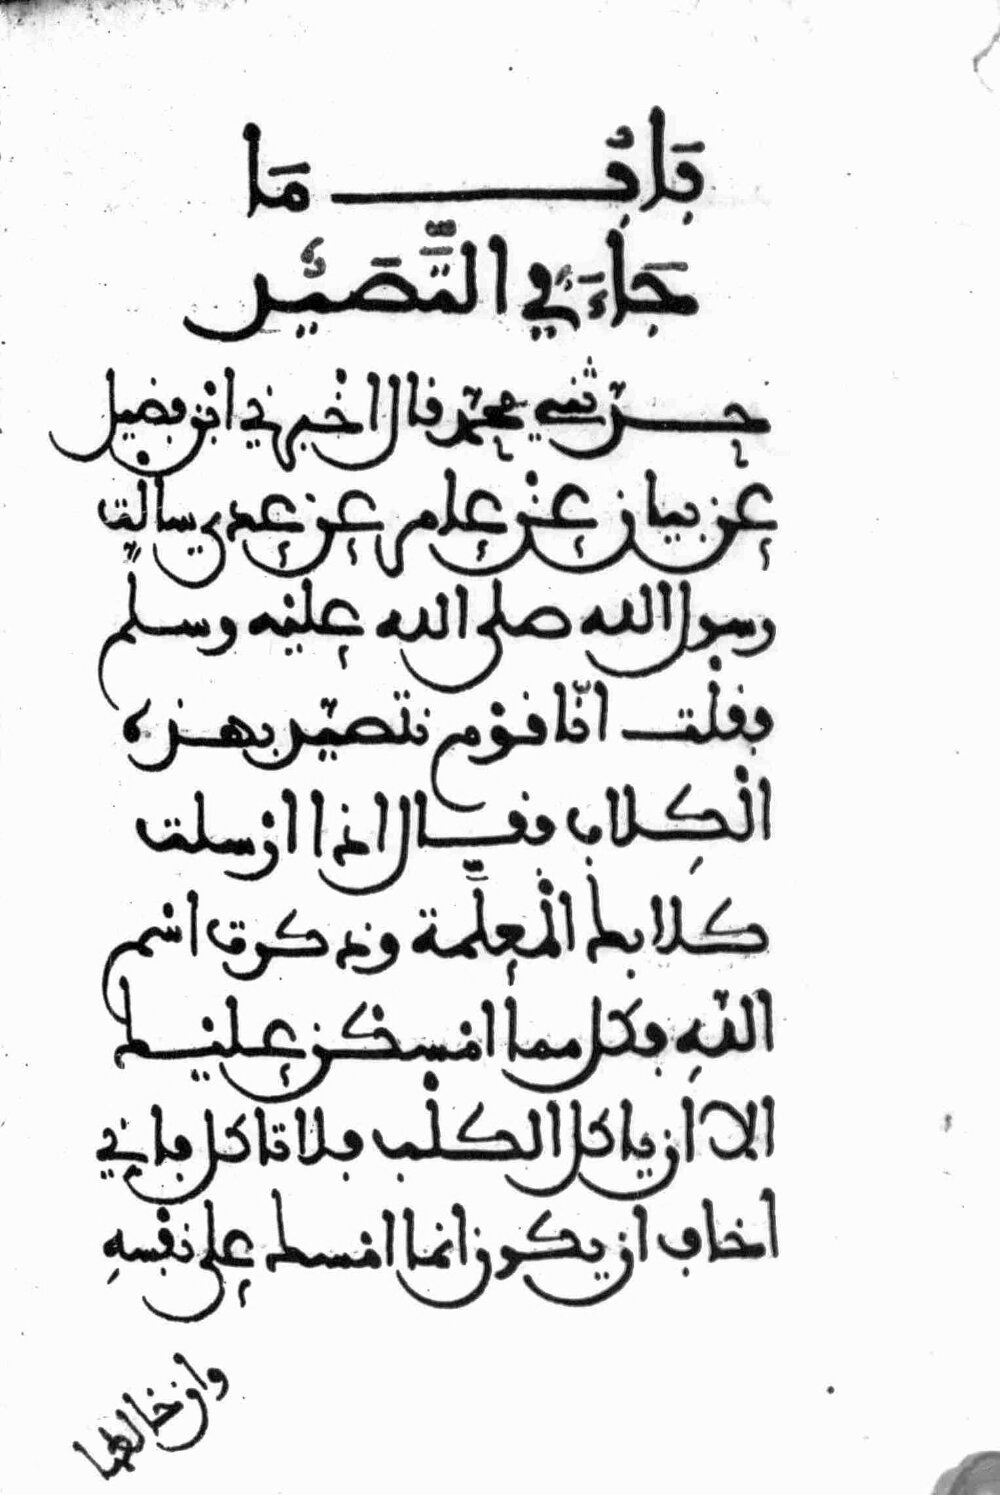 بَابُ مَا
جَاءَ فِي التَّصَيُّدِ
حدّثني محمّد قال اخبرني ابن فضيل
عن بيان عن عامر عن عدي سالتُ
رسول الله صلى الله عليه وسلم
فقلت انّا قوم نتصيّد بهذه
الْكِلاب فقال اذا ارسلت
كلابك الْمعلَّمة وذكرت اسم
اللهِ فكل مما امسكن عليك
الا ان ياكل الكلْب فلا تاكل فاني
اخاف ان يكون انما امسك على نفسهِ
وان خالطها